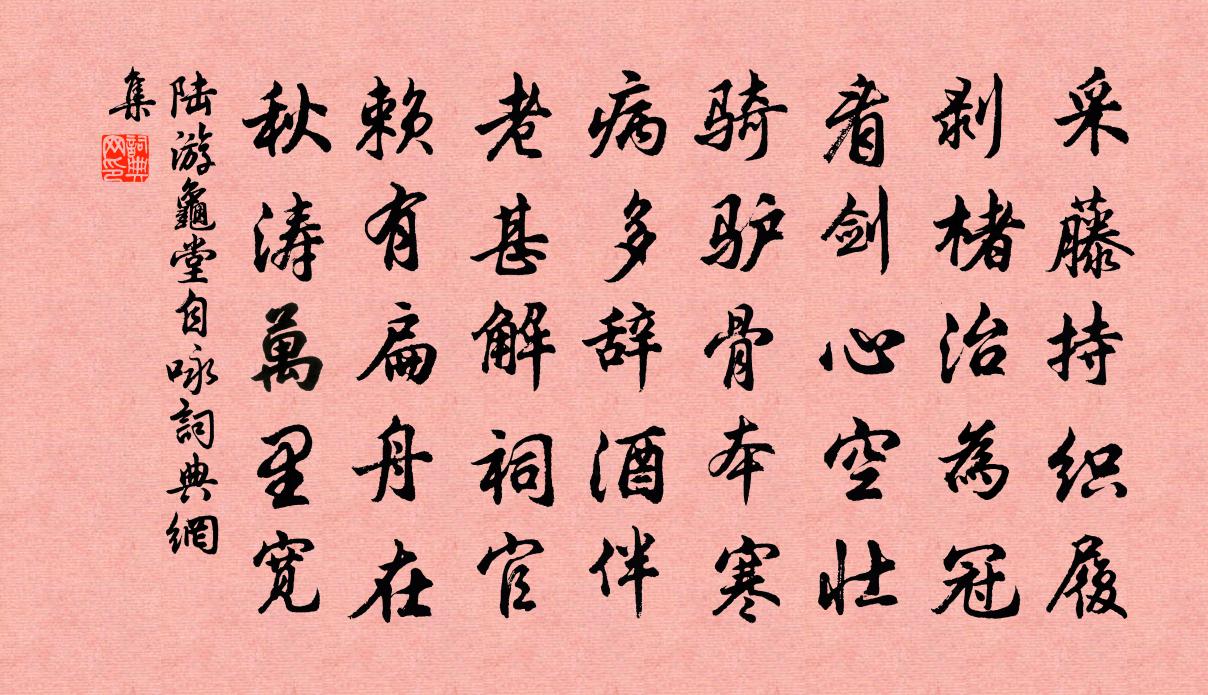 采藤持织履
剥楮治為冠
看剑心空壮
骑驴骨本寒
病多辞酒伴
老甚解祠官
赖有扁舟在
秋涛萬里宽
陆游龜堂自咏詞典網
集
詞典
网印